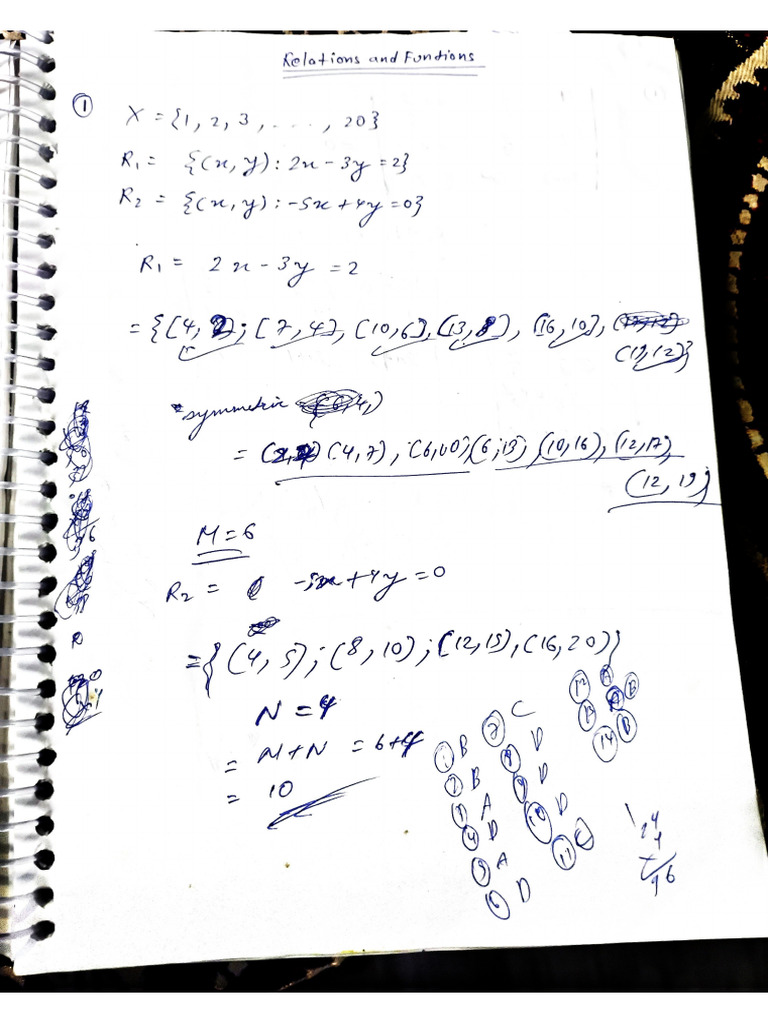 Relations and Funtions
① X = {1, 2, 3, ...., 20}
R₁ = {(x, y) : 2x - 3y = 2}
R₂ = {(x, y) : -5x + 4y = 0}
R₁ = 2x - 3y = 2
= {(4, 2); (7, 4), (10, 6), (13, 8), (16, 10),
(19, 12)}
symmetric =
= (4, 7), (6, 10), (6, 13), (10, 16), (12, 17),
(12, 19)
M = 6
R₂ = -5x + 4y = 0
= {(4, 5); (8, 10); (12, 15), (16, 20)}
N = 4
= M + N = 6 + 4
= 10
① B
② B
③ A
④ D
⑤ A
⑥ D
⑦ C
⑧ D
⑨ D
⑩ D
⑪ C
⑫ A
⑬ B
⑭ B
24
4
96